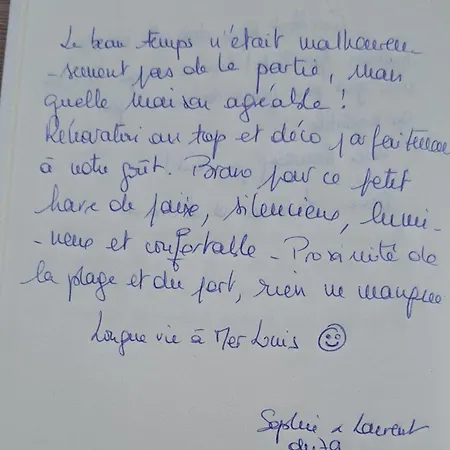 Le beau temps n'était malheureu-
-sement pas de la partie, mais
quelle maison agréable !
Rénovation au top et déco parfaitement
à notre goût. Bravo pour ce petit
havre de paix, silencieux, lumi-
-neux et confortable - Proximité de
la plage et du port, rien ne manque
Longue vie à Mer Louis ☺
Sophie & Laurent
du 79